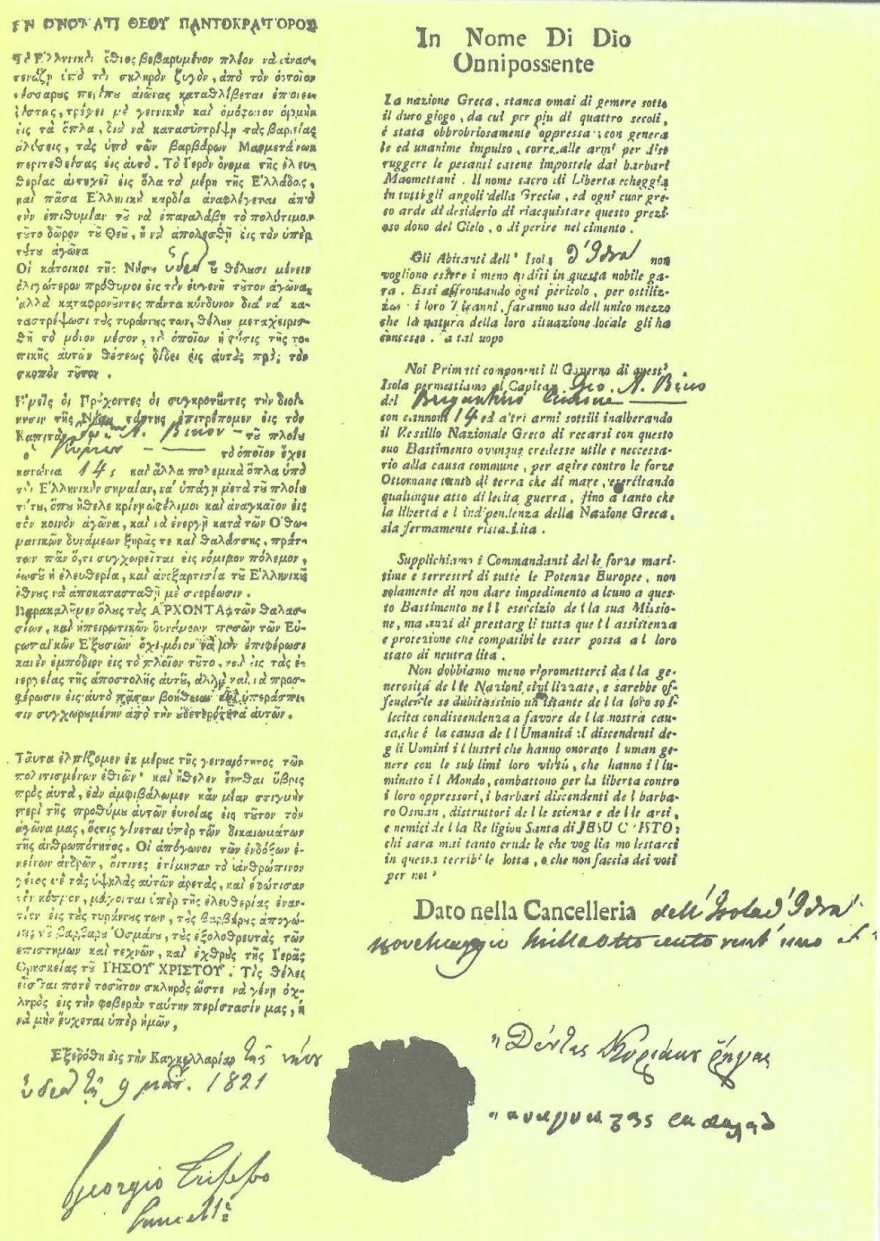 ΕΝ ΟΝΟΜΑΤΙ ΘΕΟΥ ΠΑΝΤΟΚΡΑΤΟΡΟΣ
Τὸ Ἑλληνικὸν ἔθνος βεβαρυμένον πλέον νὰ ἀνασ-
τενάζῃ ὑπὸ τὸν σκληρὸν ζυγὸν, ἀπὸ τὸν ὁποῖον
τέσσαρας περίπου αἰῶνας καταθλίβεται
τρέχει μὲ γενικὴν καὶ ὁμόζηλον ὁρμὴν
εἰς τὰ ὅπλα, διὰ νὰ κατασυντρίψῃ τὰς βαρείας
ἁλύσεις, τὰς ὑπὸ τῶν βαρβάρων Μωμετάνων
περιτεθείσας εἰς αὐτό. Τὸ ἱερὸν ὄνομα τῆς ἐλευ-
θερίας ἀντηχεῖ εἰς ὅλα τὰ μέρη τῆς Ἑλλάδος,
καὶ πᾶσα Ἑλληνικὴ καρδία ἀναφλέγεται ἀπὸ
τὴν ἐπιθυμίαν τοῦ νὰ ἐπαναλάβῃ τὸ πολύτιμον
τοῦτο δῶρον τοῦ Θεοῦ, ἢ νὰ ἀπολεσθῇ εἰς τὸν ὑπὲρ
τούτου ἀγῶνα
Οἱ κάτοικοι τῆς Νήσου ὕδρας οὐ θέλουσι μένειν
ὀλιγώτερον πρόθυμοι εἰς τὸν εὐγενῆ τοῦτον ἀγῶνα,
ἀλλὰ καταφρονῶντες πάντα κίνδυνον διὰ νὰ κα-
ταστρέψωσι τοὺς τυράννους των, θέλουν μεταχειρισ-
θῆ τὸ μόνον μέσον, τὸ ὁποῖον ἡ φύσις τῆς το-
πικῆς αὐτῶν θέσεως δίδει εἰς αὐτοὺς πρὸς τὸν
σκοπὸν τοῦτον.
Ἡμεῖς οἱ Πρύχοντες οἱ συγκροτοῦντες τὴν διοί-
κησιν τῆς Νήσου ταύτης ἐπιτρέπομεν εἰς τὸν
Καπιτὰν A. τοῦ πλοίου
τὸ ὁποῖον ἔχει
κανόνια 14 καὶ ἄλλα πολεμικὰ ὅπλα ὑπὸ
τὴν Ἑλληνικὴν σημαίαν, νὰ ὑπάγῃ μετὰ τοῦ πλοίου
τούτου, ὅπου ἤθελε κρίνῃ ὠφέλιμον καὶ ἀναγκαῖον εἰς
τὸν κοινὸν ἀγῶνα, καὶ νὰ ἐνεργῇ κατὰ τῶν Ὀθω-
μανικῶν δυνάμεων ξηρᾶς τε καὶ θαλάσσης, πράτ-
των πᾶν ὅ,τι συγχωρεῖται εἰς νόμιμον πόλεμον,
ἑωσοῦ ἡ ἐλευθερία, καὶ ἀνεξαρτησία τοῦ Ἑλληνικοῦ
ἔθνους νὰ ἀποκατασταθῇ μὲ στερέωσιν.
Παρακαλοῦμεν ὅλους τοὺς ΑΡΧΟΝΤΑΣ τῶν θαλασ-
σίων, καὶ ἠπειρωτικῶν δυνάμεων πασῶν τῶν Εὐ-
ρωπαϊκῶν Ἐξουσιῶν ὄχι μόνον νὰ μὴν ἐπιφέρωσι
κανὲν ἐμπόδιον εἰς τὸ πλοῖον τοῦτο, εἰς τὰς ἐ-
νεργείας τῆς ἀποστολῆς αὐτοῦ, ἀλλὰ καὶ νὰ προσ-
φέρωσιν εἰς αὐτὸ πᾶσαν βοήθειαν καὶ ὑπεράσπι-
σιν συγχωρουμένην ἀπὸ τὴν οὐδετερότητα αὐτῶν.
Ταῦτα ἐλπίζομεν ἐκ μέρους τῆς γενναιότητος τῶν
πολιτισμένων ἐθνῶν· καὶ ἤθελεν ὕβρις
πρὸς αὐτὰ, ἐὰν ἀμφιβάλωμεν κἂν μίαν στιγμὴν
περὶ τῆς προθύμου αὐτῶν εὐνοίας εἰς τοῦτον τὸν
ἀγῶνα μας, ὅστις γίνεται ὑπὲρ τῶν δικαιωμάτων
τῆς ἀνθρωπότητος. Οἱ ἀπόγονοι τῶν ἐνδόξων ἐ-
κείνων ἀνδρῶν, οἵτινες ἐτίμησαν τὸ ἀνθρώπινον
γένος μὲ τὰς ὑψηλὰς αὐτῶν ἀρετὰς, καὶ ἐφώτισαν
τὸν κόσμον, μάχονται ὑπὲρ τῆς ἐλευθερίας ἐναν-
τίον εἰς τοὺς τυράννους των, τοὺς βαρβάρους ἀπογό-
νους τοῦ βαρβάρου Ὀσμάνου, τοὺς ἐξολοθρευτὰς τῶν
ἐπιστημῶν καὶ τεχνῶν, καὶ ἐχθροὺς τῆς Ἱερᾶς
Θρησκείας τοῦ ΙΗΣΟΥ ΧΡΙΣΤΟΥ. Τίς θέλει
εἶσθαι ποτὲ τοσοῦτον σκληρὸς ὥστε νὰ γένῃ ὀχ-
ληρὸς εἰς τὴν φοβερὰν ταύτην περίστασίν μας, ἢ
νὰ μὴν εὔχεται ὑπὲρ ἡμῶν,
Ἐξεδόθη εἰς τὴν Καγκελλαρίαν τῆς νήσου
ὕδρας τῇ 9 μαΐ. 1821
Georgio
Cancell
In Nome Di Dio
Onnipossente
La nazione Greca, stanca omai di gemere sotto
il duro giogo, da cui per piu di quattro secoli,
é stata obbrobriosamente oppressa; con genera
le ed unanime impulso, corre alle armi per dist
ruggere le pesanti catene impostele dai barbari
Maomettani. Il nome sacro di Liberta echeggia
in tutti gli angoli della Grecia, ed ogni cuor gre-
co arde di desiderio di riacquistare questo prezi-
oso dono del Cielo, o di perire nel cimento.
Gli Abitanti dell' Isola d'Idra non
vogliono essere i meno arditi in questa nobile ga-
ra. Essi affrontando ogni pericolo, per ostiliz-
zare i loro Tiranni, faranno uso dell unico mezzo
che la natura della loro situazione locale gli ha
concesso. a tal uopo
Noi Primati componenti il Governo di quest'
Isola permettiamo al Capitan Gio. A.
del Brigantino
con cannoni 14 ed altri armi sottili inalberando
il Vessillo Nazionale Greco di recarsi con questo
suo Bastimento ovunque credesse utile e neccessa-
rio alla causa commune, per agire contro le forze
Ottomane tanto di terra che di mare, esercitando
qualunque atto di lecita guerra, fino a tanto che
la libertá e l indipendenza della Nazione Greca,
sia fermamente ristabilita.
Supplichiamo i Commandanti delle forze marit-
time e terrestri di tutte le Potenze Europee, non
solamente di non dare impedimento alcuno a ques-
to Bastimento nell esercizio della sua Missio-
ne, ma anzi di prestargli tutta quell assistenza
e protezione che compatibile esser possa al loro
stato di neutralita.
Non dobbiamo meno riprometterci dalla ge-
nerositá delle Nazioni civilizzate, e sarebbe of-
fenderle se dubitassimo un istante della loro sol-
lecita condiscendenza a favore della nostra cau-
sa, che é la causa dell Umanitá. I discendenti de-
gli Uomini illustri che hanno onorato l uman ge-
nere con le sublimi loro virtú, che hanno illu-
minato il Mondo, combattono per la liberta contro
i loro oppressori, i barbari discendenti del barba-
ro Osman, distruttori delle scienze e delle arti,
e nemici della Religion Santa di JESU CRISTO:
chi sara mai tanto crudele che voglia molestarci
in questa terribile lotta, o che non faccia dei voti
per noi
Dato nella Cancelleria dell' Isola d'Idra
nove Maggio mille otto cento vent' uno